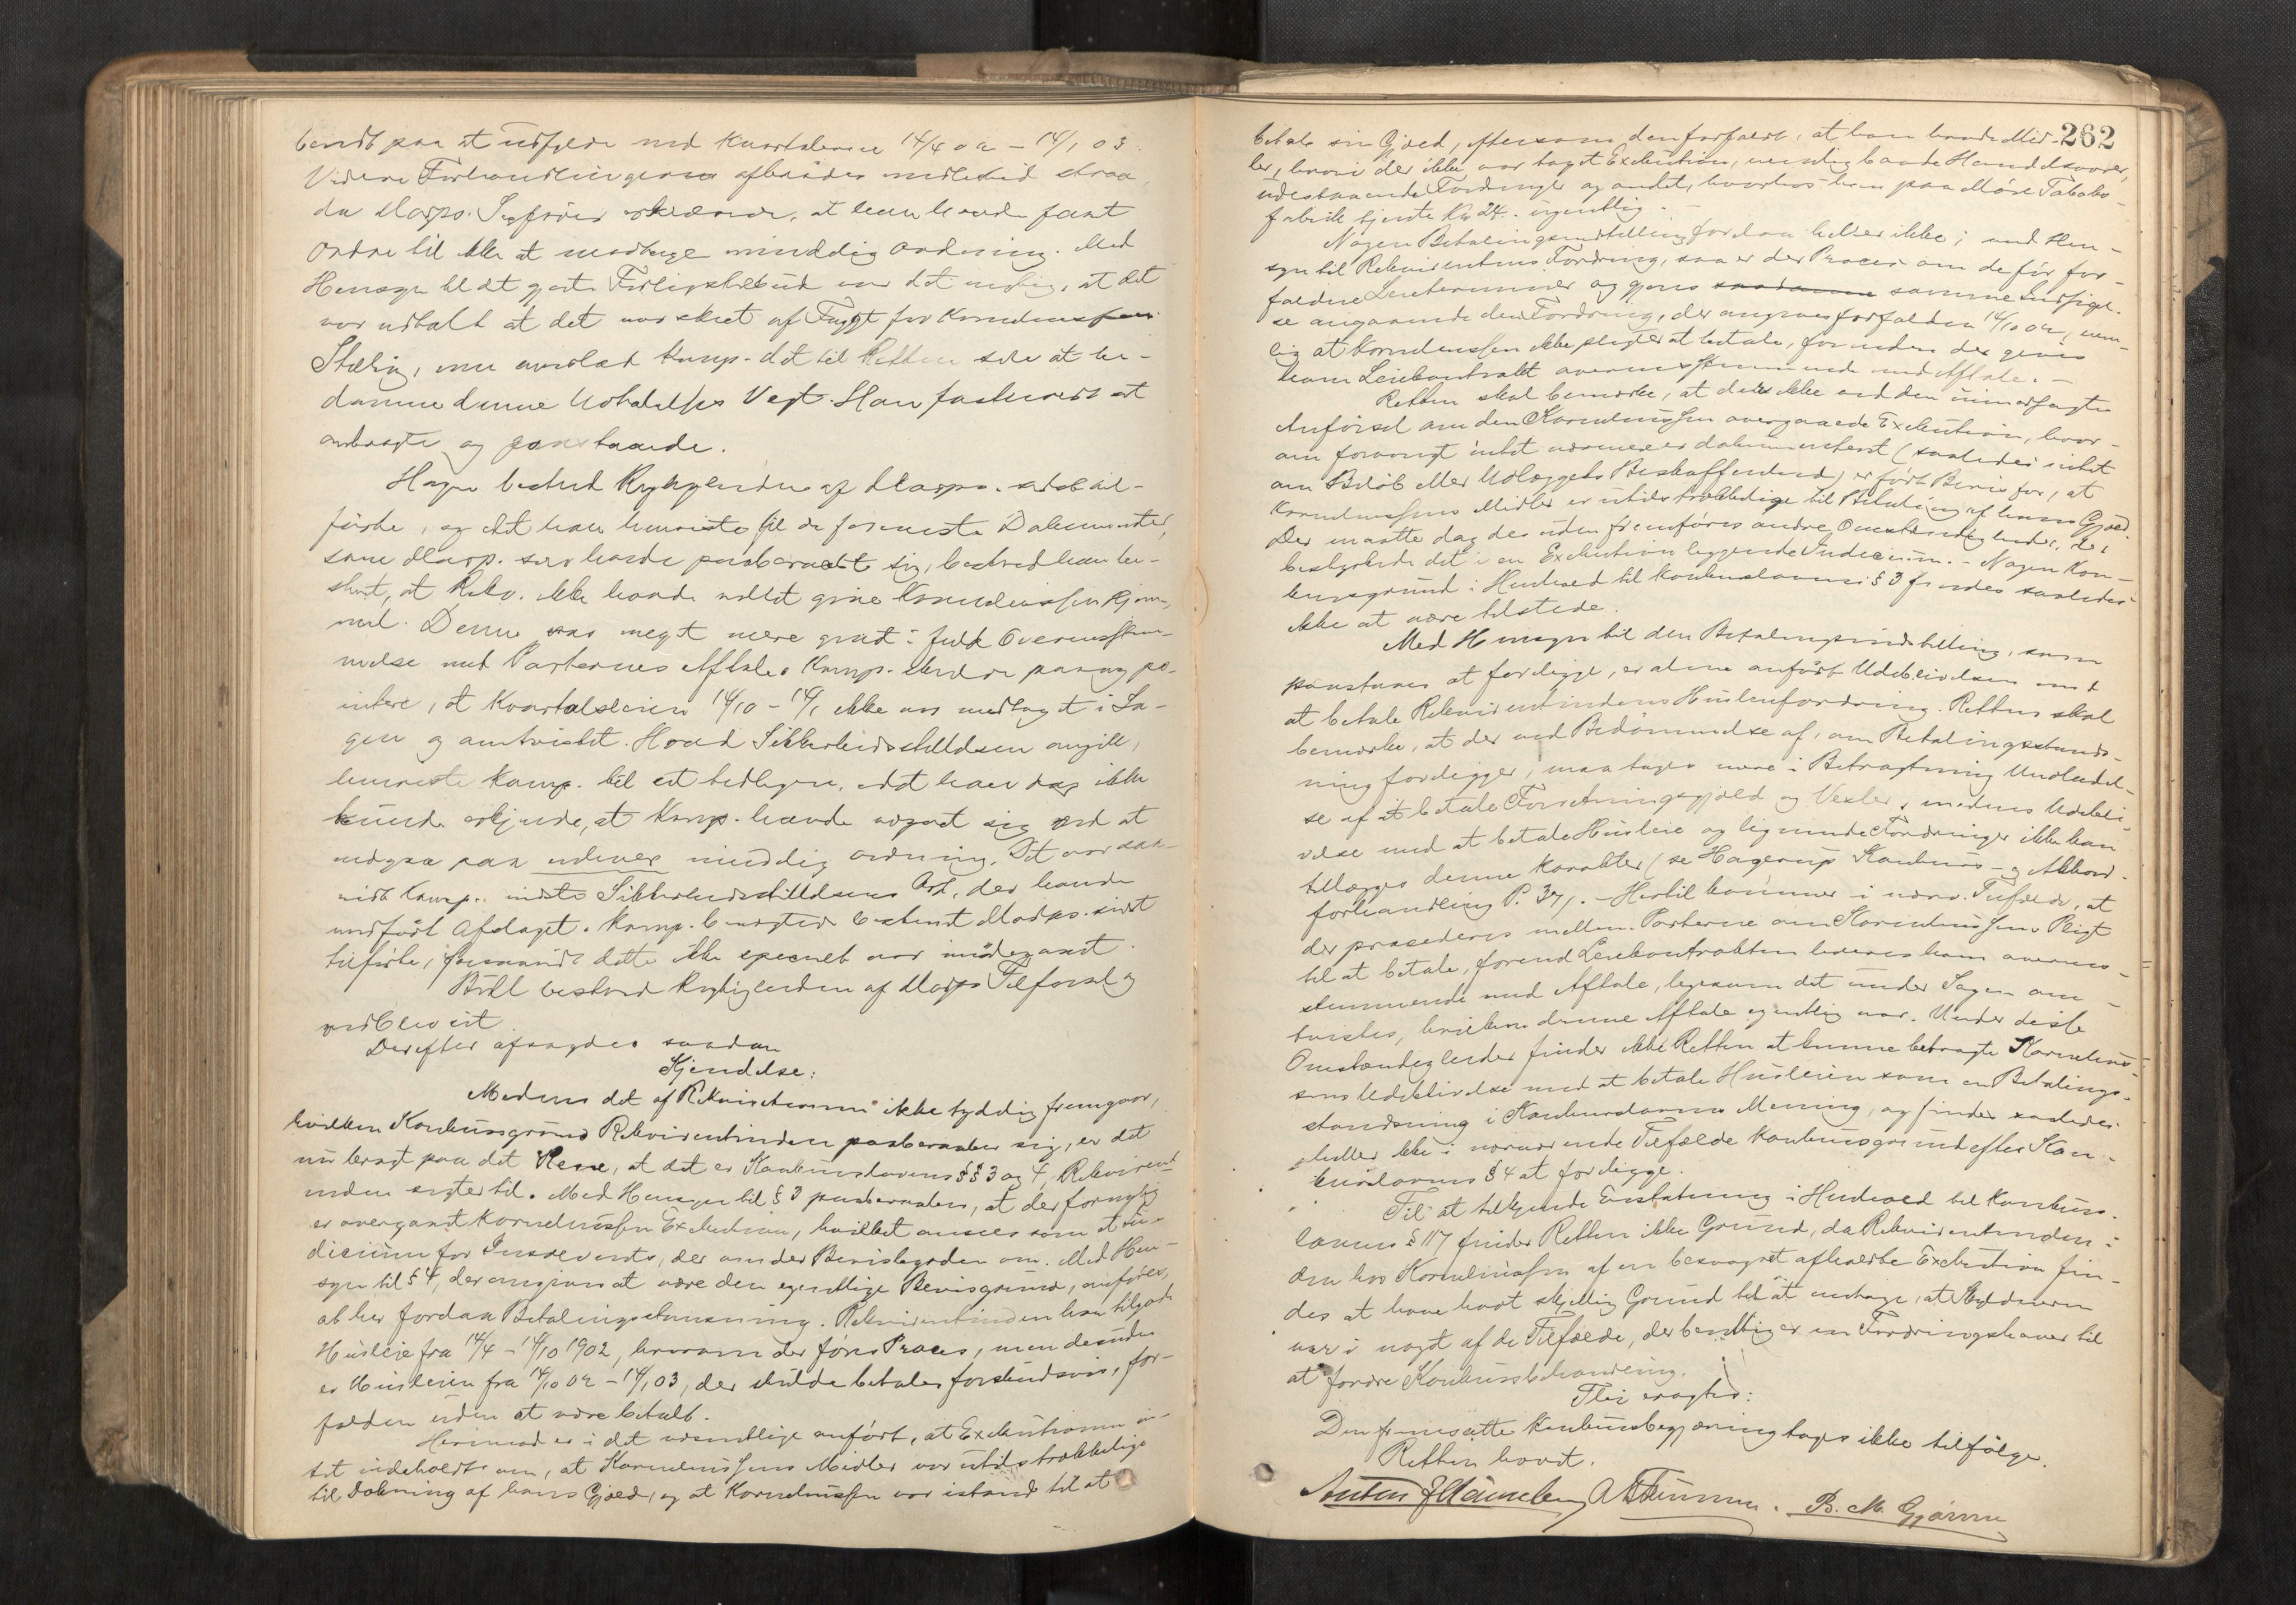 bendt paa at udfylde med Kvartalerne 14/4 02 - 14/1 03.
Videre Forhandlingerne afbrödes imidlertid straa
da Morps. Sagförer erklærede, at han havde faat
Ordre til ikke at modtage mindelig Ordning. Med
Hensyn til det gjorte Forligstilbud var det urigtig, at det
var udtalt at det var skeet af Frygt for Kornelinssens
Stilling, men overlod Komp. det til Retten selv at be-
dømme denne Udtalelses Vegt. Han fastholdt sit
anbragte og paastaaede.
Hagen bestred Rigtigheden af Morps. sidst til-
förte, og idet han henviste til de foreviste Dokumenter,
som Morp. selv havde paaberaabt sig, bestred han be-
stemt, at Rekv. ikke havde villet give Kornelinssen Hjem-
mel. Denne var meget mere givet i fuld Overensstem-
melse med Parternes Aftale. Komp. skulde paany po-
intere, at Kvartalsleien 14/10 - 14/1 ikke var medtaget i Sa-
gen og omtvistet. Hvad Sikkerhedsstillelsen angik,
henviste Komp. til sit tidligere, idet han dog ikke
kunde erkjende, at Komp. havde vægret sig ved at
indgaa paa enhver mindelig Ordning. Det var saa-
vidt Komp. vidste Sikkerhedsstillelsens Art, der havde
medfört Afslaget. Komp. benægtede bestemt Morps. sidst
tilförte, forsaavidt dette ikke specielt var imödegaaet.
Böll bestred Rigtigheden af Morps Tilförsel og
vedblev sit
Derefter afsagdes saadan
Kjendelse:
Medens det af Rekvisitionen ikke tydelig fremgaar,
hvilken Konkursgrund Rekvirentinden paaberaaber sig, er det
nu bragt paa det Rene, at det er Konkurslovens §§ 3 og 4, Rekvirent-
inden sigter til. Med Hensyn til § 3 paaberaabes, at der fornylig
er overgaaet Kornelinssen Exekution, hvilket ansees som et In-
dicium for Insolvents, der vender Bevisbyrden om. Med Hen-
syn til § 4, der angives at være den egentlige Bevisgrund, anföres,
at her forelaa Betalingsstansning. Rekvirentinden har tilgode
Husleie fra 14/4 - 14/10 1902, hvorom der föres Proces, men desuden
er Husleien fra 14/10 02 - 14/1 03, der skulde betales forskudsvis, for-
falden uden at være betalt.
Herimod er i det væsentlige anfört, at Exekutionen in-
tet indeholdt om, at Kornelinssens Midler var utilstrækkelige
til Dækning af hans Gjæld, og at Kornelinssen var istand til at
262
betale sin Gjæld, eftersom den forfaldt, at han havde Mid-
ler, hvori der ikke var taget Exekution, nemlig baade Handelsvarer,
udestaaende Fordringer og andet, hvorhos han paa Möre Tobaks-
fabrik tjente Kr 24.- ugentlig.
Nogen Betalingsindstilling forelaa heller ikke; med Hen-
syn til Rekvirentindens Fordring, saa er der Proces om de för for-
faldne Leieterminer og gjøres saadanne samme Indsigel-
se angaaende den Fordring, der angives forfalden 14/10 02, nem-
lig at Kornelinssen ikke pligter at betale, forinden der gives
ham Leiekontrakt overensstemmende med Aftale. -
Retten skal bemærke, at der ikke ved den imodsagte
Anförsel om den Kornelinssen overgaaede Exekution, hvor-
om forövrigt intet nærmere er dokumenteret (saaledes intet
om Belöb eller Udlæggets Beskaffenhed) er fört Bevis for, at
Kornelinssens Midler er utilstrækkelige til Betaling af hans Gjæld.
Der maatte dog desuden fremföres andre Omstændigheder, der
bestyrkede det i en Exekution liggende Indicium. - Nogen Kon-
kursgrund i Henhold til Konkurslovens § 3 findes saaledes
ikke at være tilstede.
Med Hensyn til den Betalingsindstilling, som
paastaaes at foreligge, er alene anfört Udeblivelsen med
at betale Rekvirentindens Huslejefordring. Retten skal
bemærke, at der ved Bedömmelse af, om Betalingsstands-
ning foreligger, maa tages mere i Betragtning Undladel-
se af at betale Forretningsgjæld og Vexler, medens Udebli-
velse med at betale Husleie og lignende Fordringer ikke kan
tillægges denne Karakter (se Hagerups Konkurs- og Akkord-
forhandling P. 37). - Hertil kommer i nærv. Tilfælde, at
der procederes mellem Parterne om Kornelinssens Pligt
til at betale, forend Leiekontrakten leveres ham overens-
stemmende med Aftale, ligesom det under Sagen om-
tvistes, hvilken denne Aftale egentlig var. Under disse
Omstændigheder finder ikke Retten at kunne betragte Kornelins-
sens Udeblivelse med at betale Husleien som en Betalings-
standsning i Konkurslovens Mening, og findes saaledes
heller ikke i nærværende Tilfælde Konkursgrund efter Kon-
kurslovens § 4 at foreligge.
Til at tilkjende Erstatning i Henhold til Konkurs-
lovens § 117 finder Retten ikke Grund, da Rekvirentinden i
den hos Kornelinssen af en besvogret afholdte Exekution fin-
des at have havt skjellig Grund til at antage, at Skyldneren
var i noget af de Tilfælde, der berettiger en Fordringshaver til
at fordre Konkursbehandling.
Thi eragtes:
Den fremsatte Konkursbegjæring tages ikke tilfölge.
Retten hævet.
B. M. Gjærum